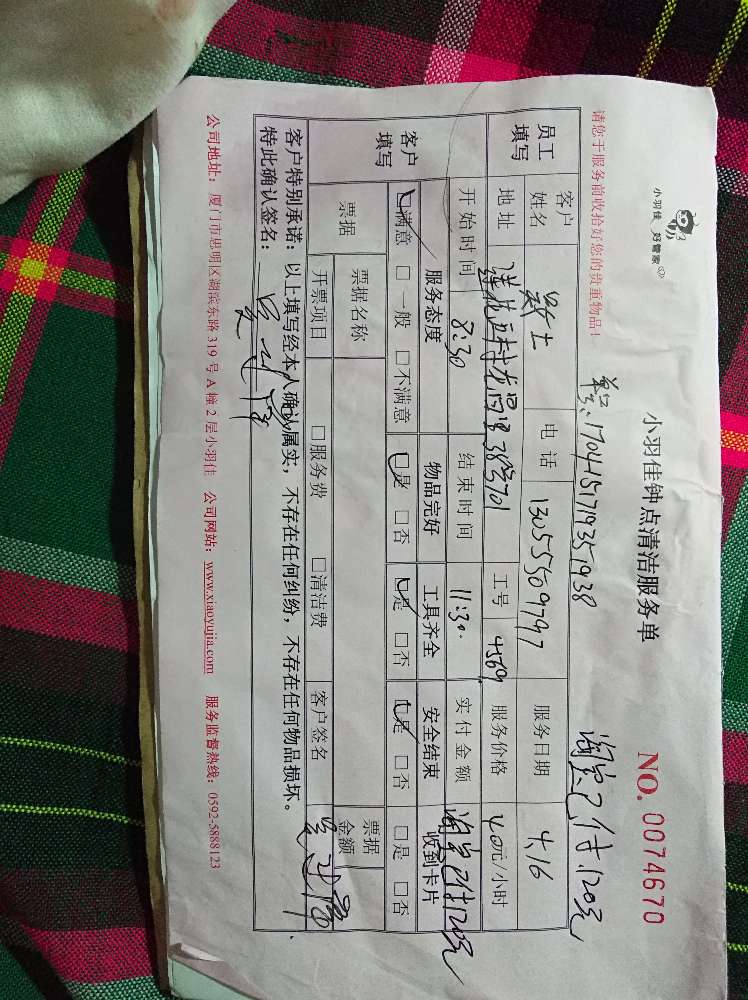 小羽佳 好管家
小羽佳钟点清洁服务单
NO. 0074670
请您于服务前收拾好您的贵重物品！
单号:1704151719351938
淘宝已付.120元
员工填写
客户姓名
女士
电话
13055509797
服务日期
4.16
地址
工号
4569
服务价格
40元/小时
开始时间
8:30
结束时间
11:30.
实付金额
淘宝已付120元
客户填写
服务态度
物品完好
工具齐全
安全结束
收到卡片
□满意 □一般 □不满意
□是 □否
□是 □否
□是 □否
□是 □否
票据
票据名称
票据金额
开票项目
□服务费 □清洁费
客户签名
客户特别承诺：以上填写经本人确认属实，不存在任何纠纷，不存在任何物品损坏。
特此确认签名：
公司地址：厦门市思明区湖滨东路 319 号 A 幢 2 层小羽佳 公司网站：www.xiaoyujia.com 服务监督热线：0592-5888123